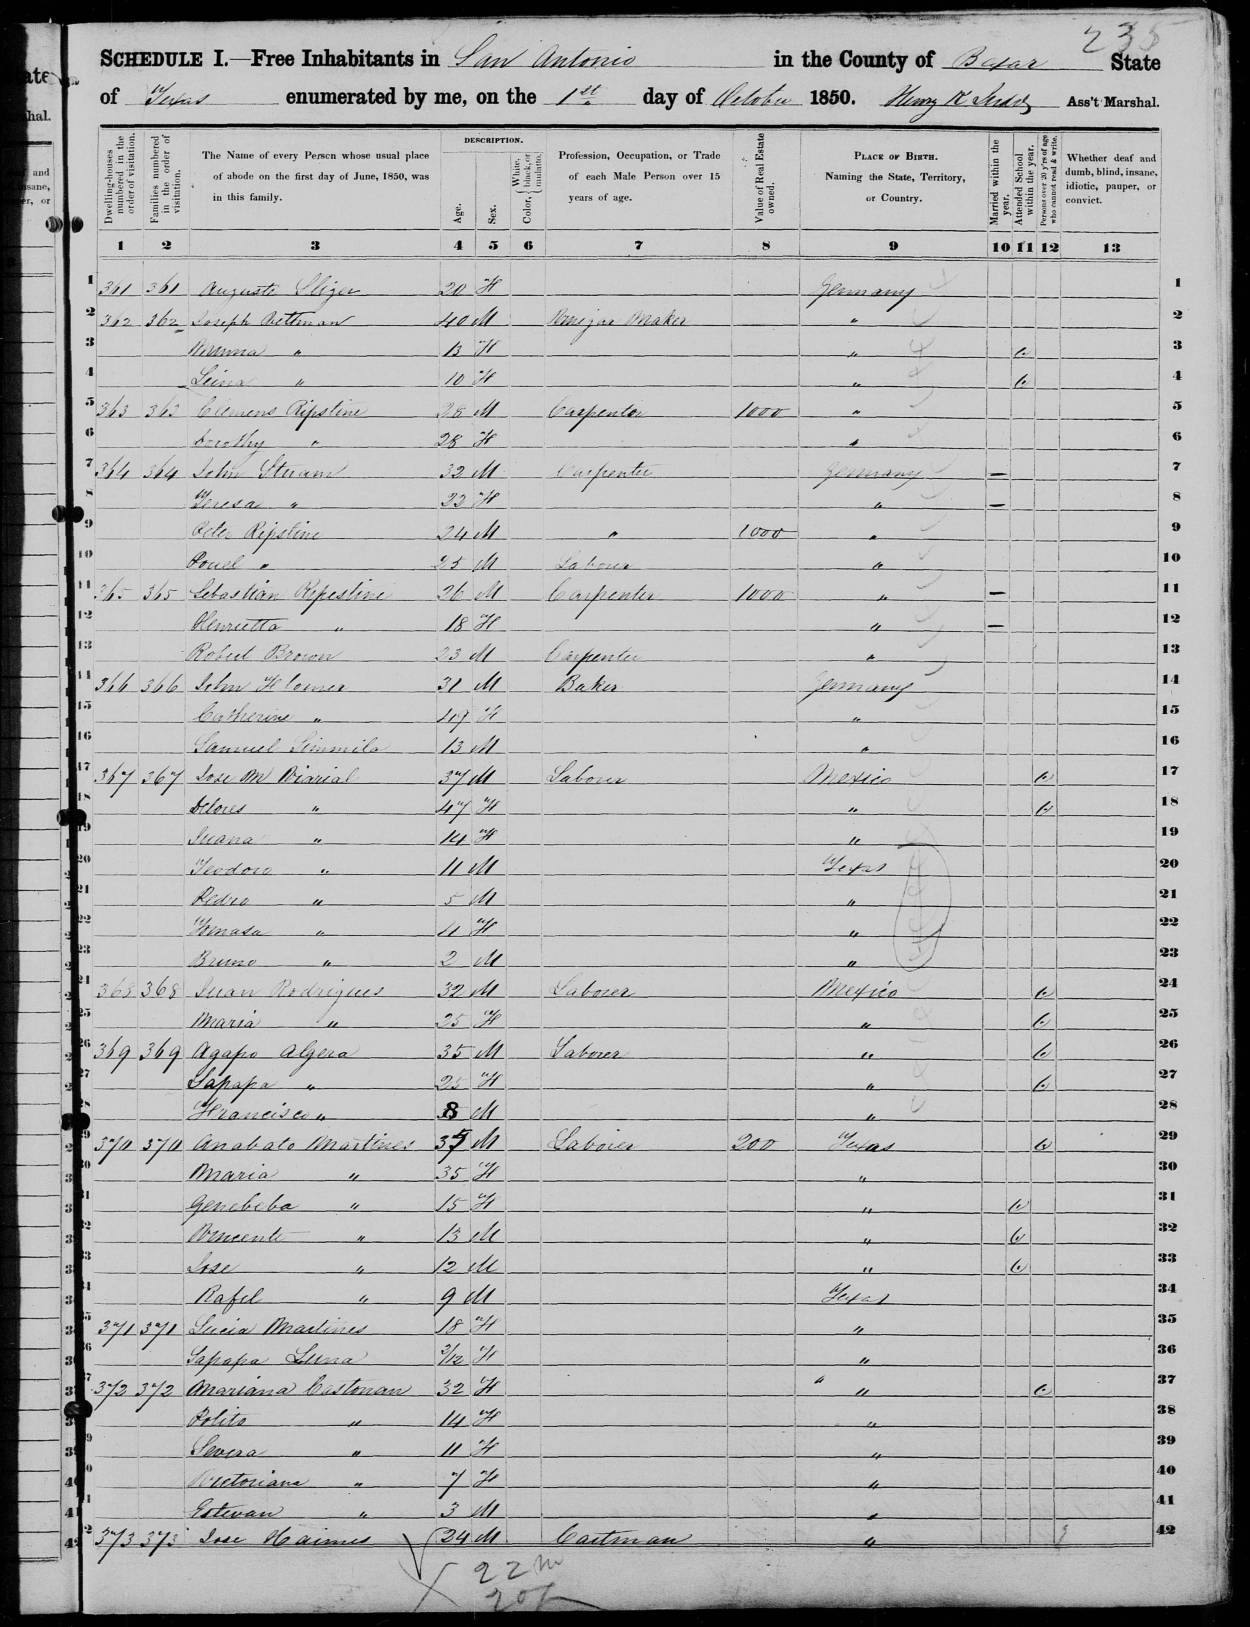 235
SCHEDULE I.—Free Inhabitants in San Antonio in the County of Bexar State
of Texas enumerated by me, on the 1st day of October 1850. Henry K Ass't Marshal.
Dwelling-houses numbered in the order of visitation.
Families numbered in the order of visitation.
The Name of every Person whose usual place of abode on the first day of June, 1850, was in this family.
DESCRIPTION.
Age.
Sex.
Color, { White, black, or mulatto.
Profession, Occupation, or Trade of each Male Person over 15 years of age.
Value of Real Estate owned.
PLACE OF BIRTH. Naming the State, Territory, or Country.
Married within the year.
Attended School within the year.
Persons over 20 y'rs of age who cannot read & write.
Whether deaf and dumb, blind, insane, idiotic, pauper, or convict.
1 2 3 4 5 6 7 8 9 10 11 12 13
1 361 361 Auguste 20 F Germany 1
2 362 362 Joseph Bettman 40 M Vinegar Maker " 2
3 " 13 F " 3
4 Leina " 10 F " 4
5 363 363 Clemens Ripstine 28 M Carpenter 1000 " 5
6 Dorothy " 28 F " 6
7 364 364 John 32 M Carpenter Germany — 7
8 Teresa " 22 F " — 8
9 Peter Ripstine 24 M " 1000 " 9
10 " 25 M Laborer " 10
11 365 365 Sebastian Ripestine 26 M Carpenter 1000 " — 11
12 Henrietta " 18 F " — 12
13 Robert Brown 23 M Carpenter " 13
14 366 366 John 31 M Baker Germany 14
15 Catherine " 49 F " 15
16 Samuel Simmila 13 M " 16
17 367 367 Jose M 37 M Laborer Mexico 17
18 Delores " 47 F " 18
19 Juana " 14 F " 19
20 Teodoro " 11 M Texas 20
21 Pedro " 5 M " 21
22 Tomasa " 11 F " 22
23 Bruno " 2 M " 23
24 368 368 Juan Rodrigues 32 M Laborer Mexico 24
25 Maria " 25 F " 25
26 369 369 Agapo Algera 35 M Laborer " 26
27 Sapapa " 25 F " 27
28 Francisco " 8 M " 28
29 370 370 Anabato Martines 35 M Laborer 200 Texas 29
30 Maria " 35 F " 30
31 Genebeba " 15 F " 31
32 Vincente " 13 M " 32
33 Jose " 12 M " 33
34 Rafel " 9 M Texas 34
35 371 371 Lucia Martines 18 F " 35
36 Sapapa Luna 3/12 F " 36
37 372 372 Mariana Castonan 32 F " 37
38 Polito " 14 F " 38
39 Severa " 11 F " 39
40 Victoriana " 7 F " 40
41 Estevan " 3 M " 41
42 373 373 Jose Haimes 24 M Cartman " 42
22 m
20 f